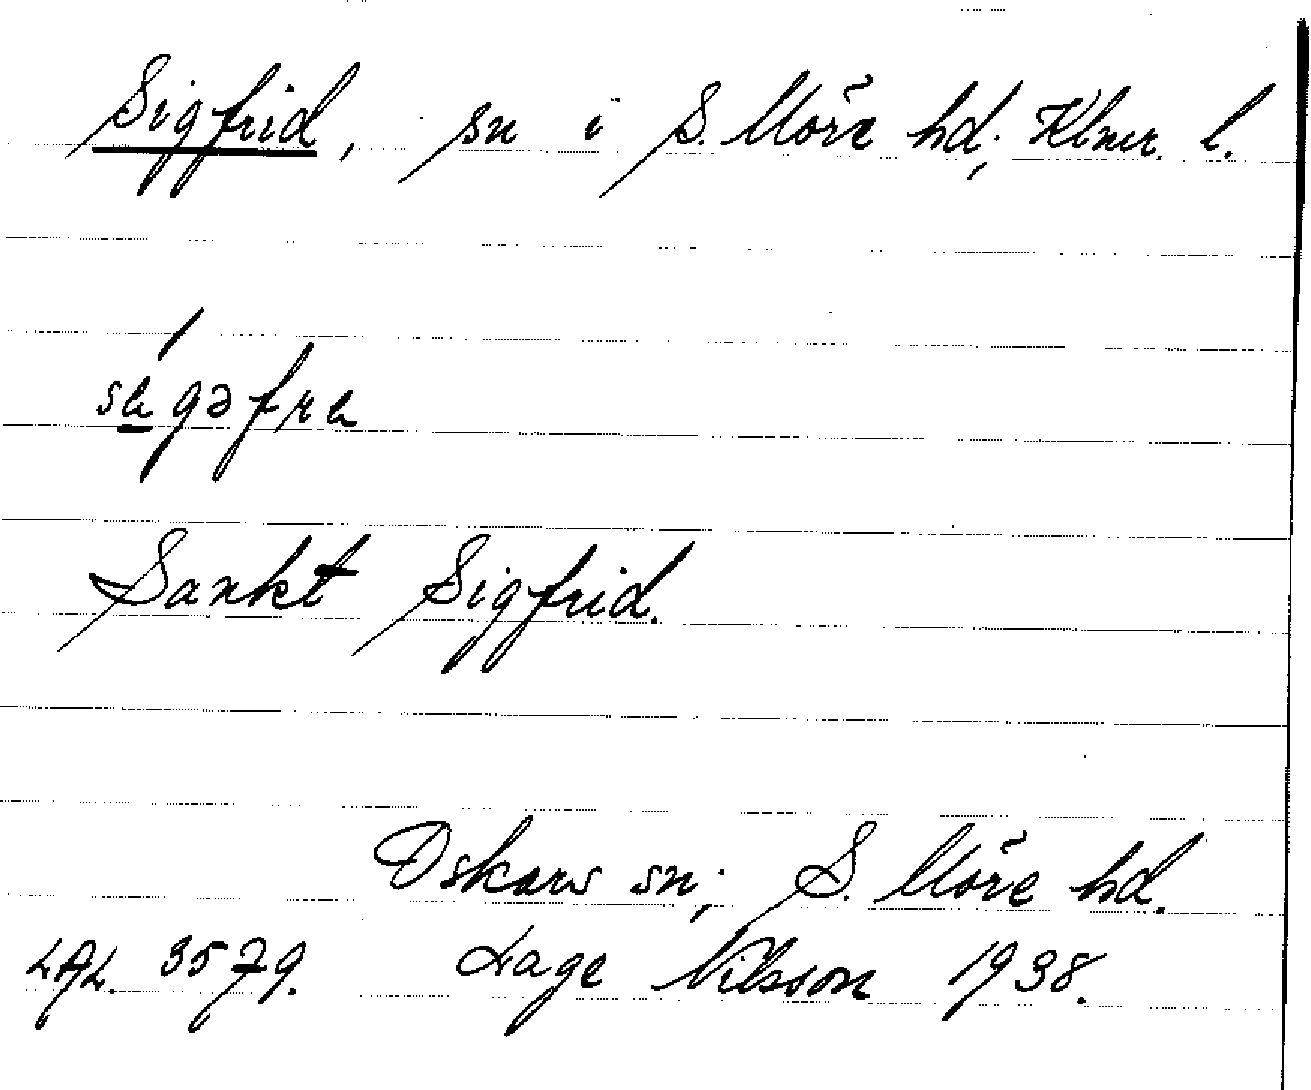 Sigfrid, sn i S. Möre hd; Klmr. l.
sɩgəfrɩ
Sankt Sigfrid.
Oskars sn; S. Möre hd.
LAL. 3579. Tage Nilsson 1938.